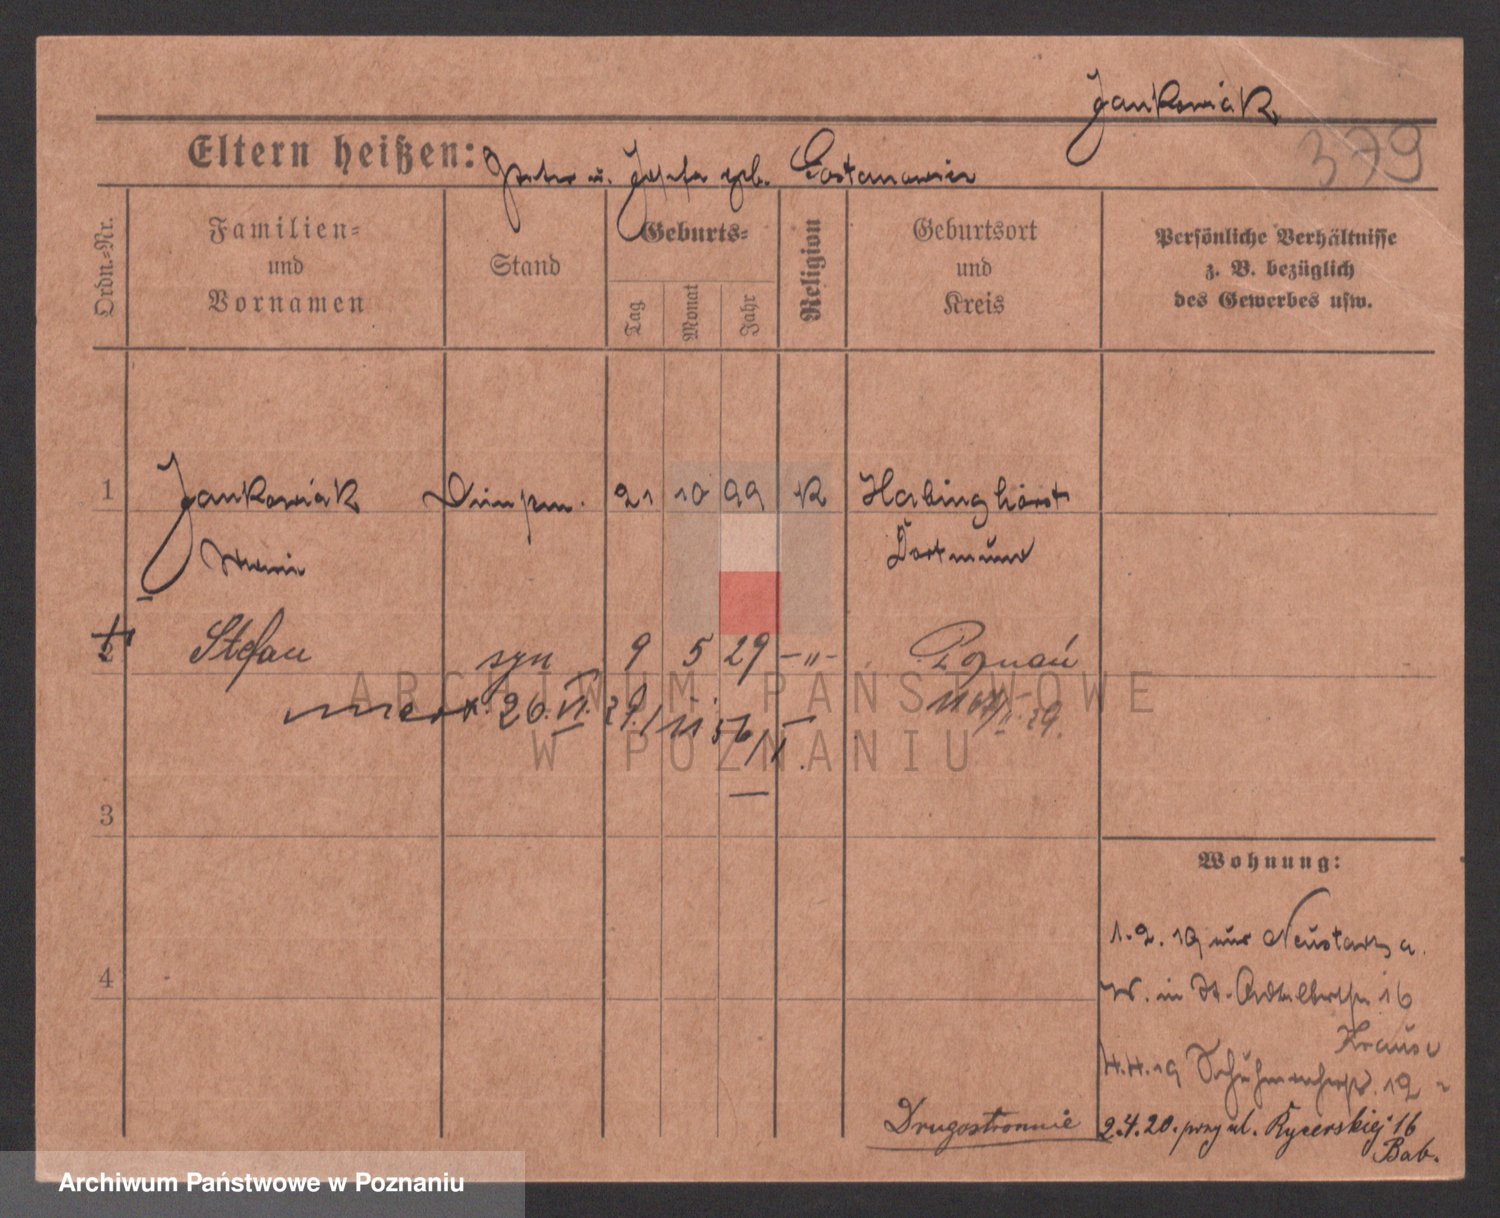 Jankowiak
379
Eltern heißen: Peter u. Josefa geb.
Ordn.=Nr.
Familien=
und
Vornamen
Stand
Geburts=
Tag
Monat
Jahr
Religion
Geburtsort
und
Kreis
Persönliche Verhältnisse
z. B. bezüglich
des Gewerbes usw.
1 Jankowiak 21 10 99 K Habinghorst
Dortmund
2 Stefan syn 9 5 29 -„- Poznań
26.VI.29.
3
Wohnung:
1.2.19 aus
4
in St. Adalbertstr 16
Krause
4.4.19 Schuhmacherstr. 12
Drugostronnie 2.4.20. przy ul. Rycerskiej 16
Bab.
ARCHIWUM PAŃSTWOWE
W POZNANIU
Archiwum Państwowe w Poznaniu